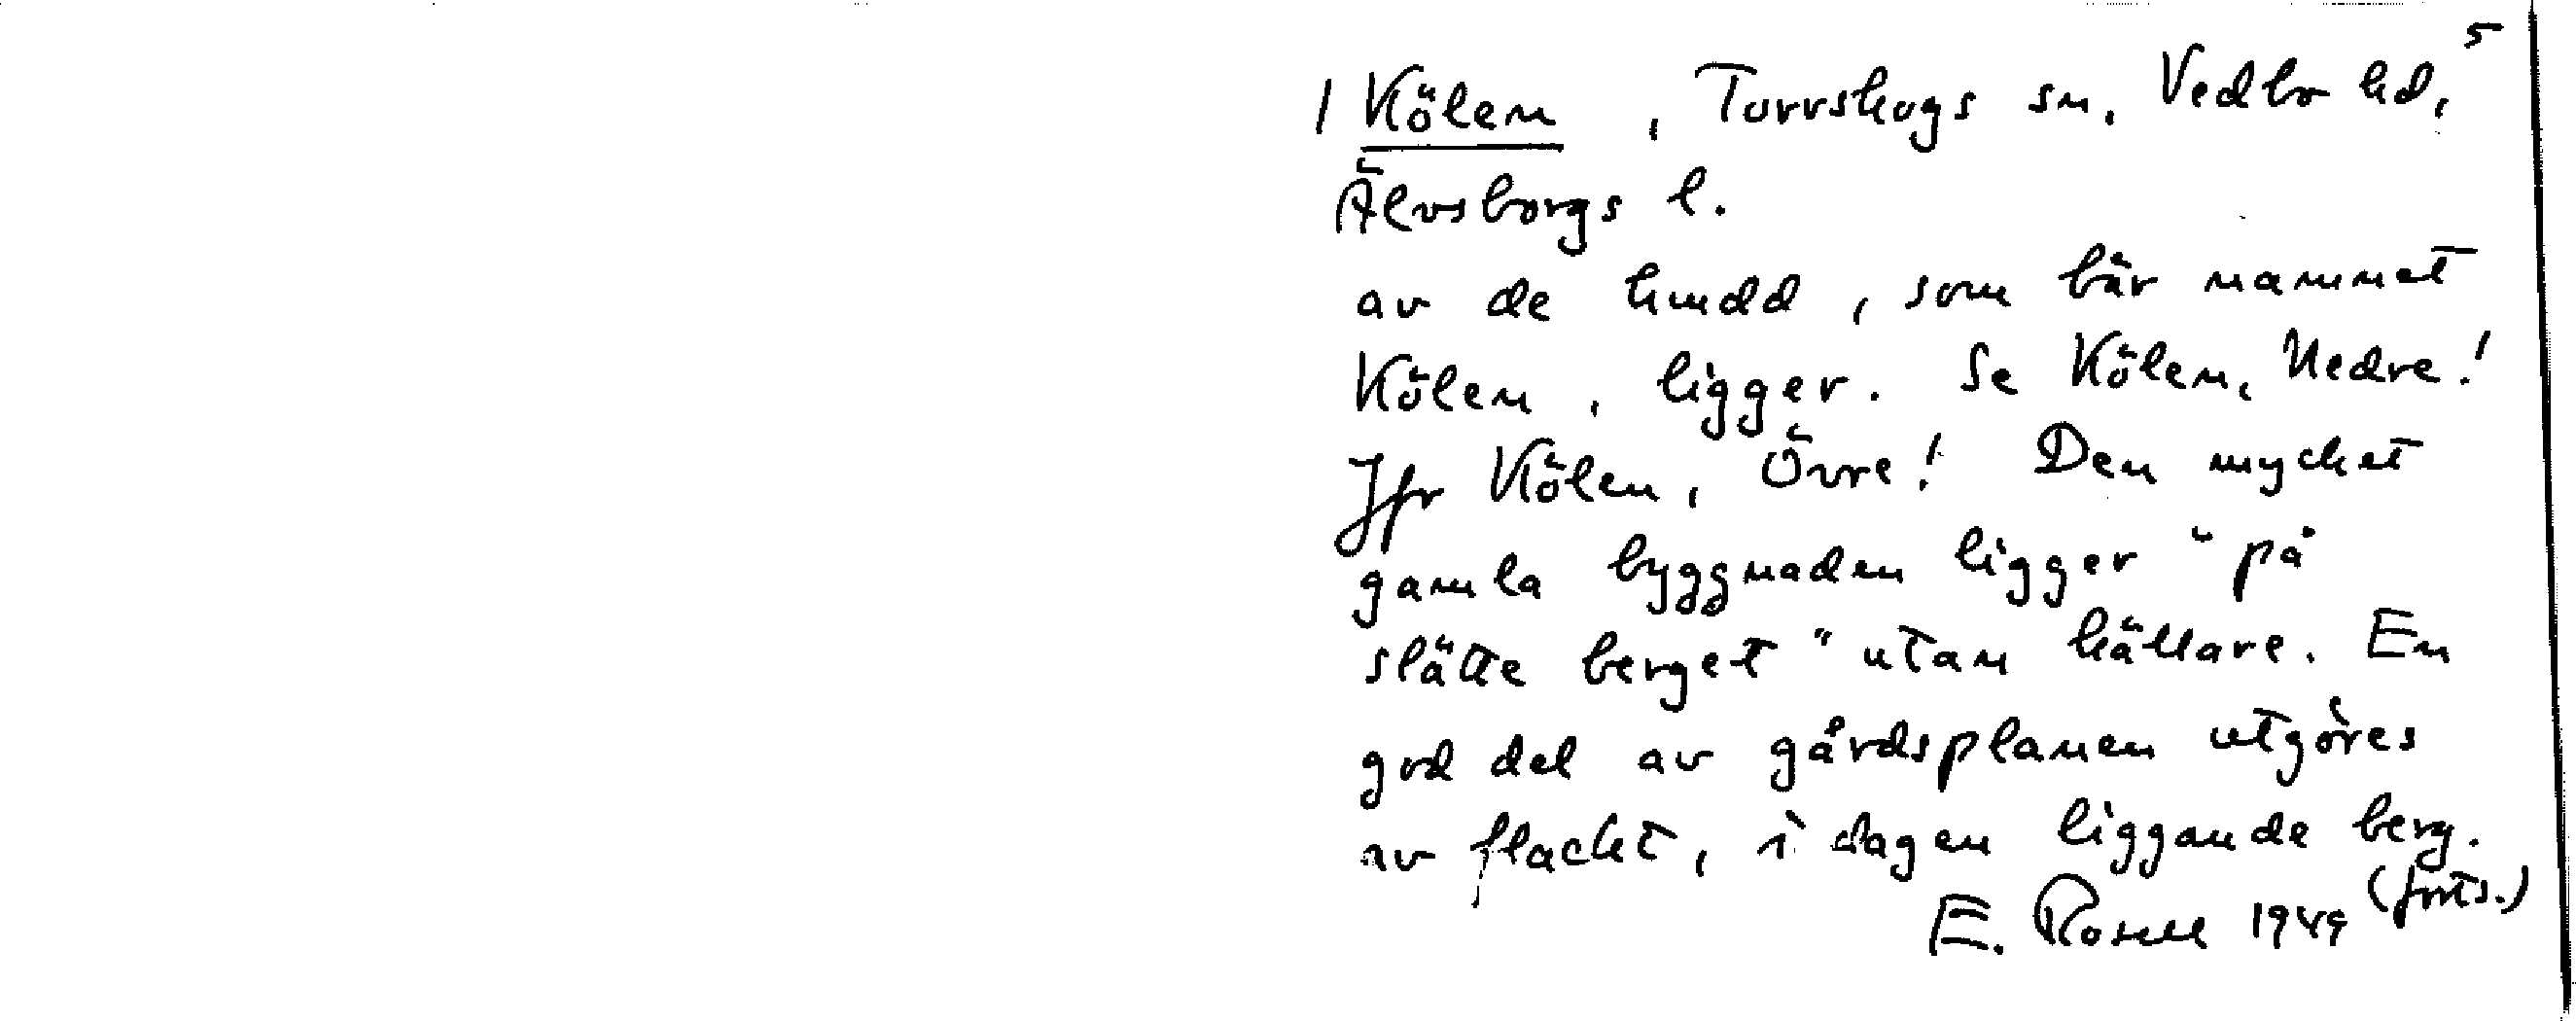 5
/ Kölen, Torrskogs sn. Vedbo hd,
Älvsborgs l.
av de hmdd, som bär namnet
Kölen, ligger. Se Kölen, Nedre!
Jfr Kölen, Övre! Den mycket
gamla byggnaden ligger "på
slätte berget" utan källare. En
god del av gårdsplanen utgöres
av flackt, i dagen liggande berg.
(forts.)
E. Rosell 1949